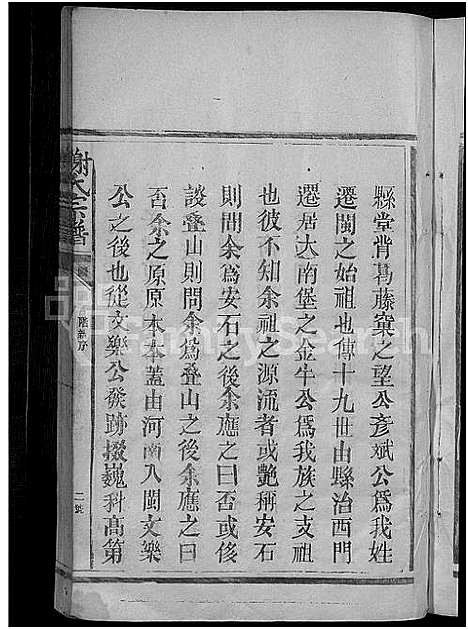 縣堂背葛藤窠之望公彦斌公爲我姓
遷閩之始祖也傳十九世由縣治西門
遷居达南堡之金牛公爲我族之支祖
也彼不知余祖之源流者或艷稱安石
則問余爲安石之後余應之曰否或侈
談叠山則問余爲叠山之後余應之曰
否余之原原本本蓋由河南入閩文樂
公之後也從文樂公發跡掇巍科高第
謝氏宗譜
階新序
二號
FamilySearch